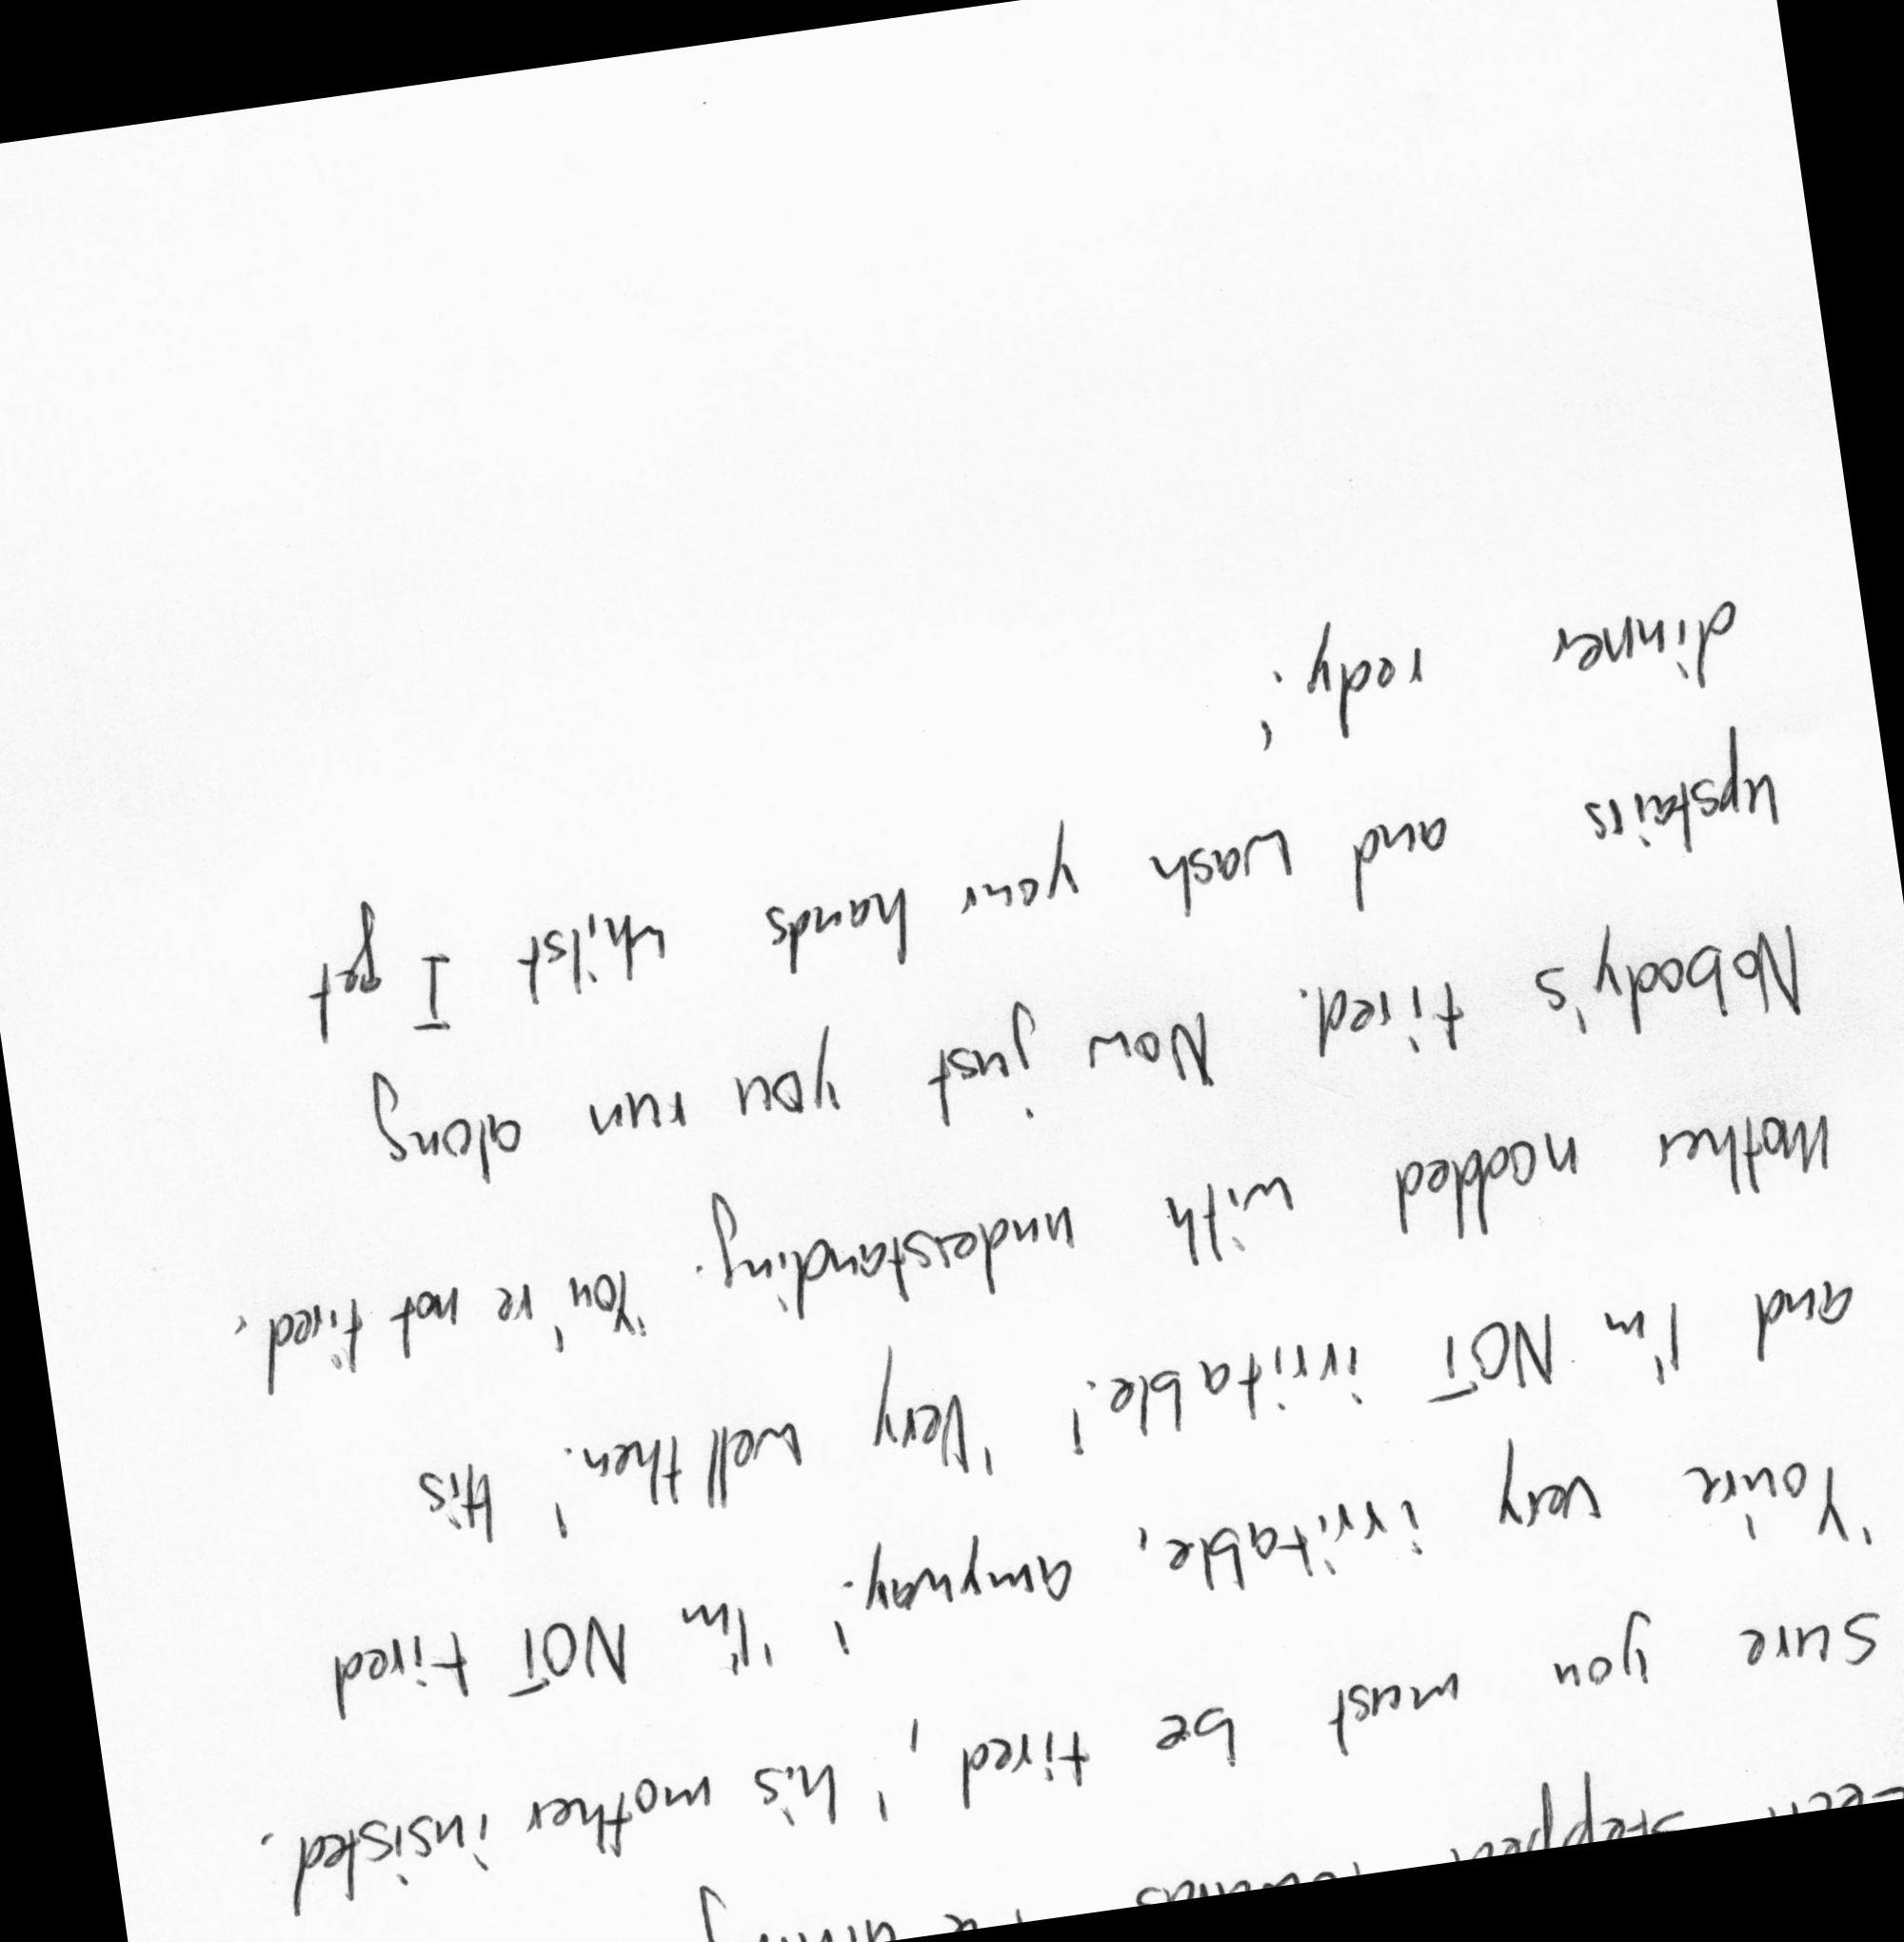 stepped towards
sure you must be tired,' his mother insisted.
'You're very irritable, anyway.' 'I'm NOT tired
and I'm NOT irritable.' 'Very well then.' His
mother nodded with understanding. 'You're not tired.
Nobody's tired. Now just you run along
upstairs and wash your hands whilst I get
dinner redy.'